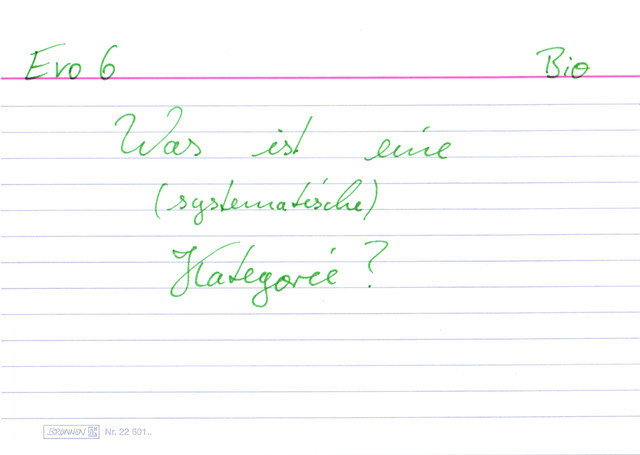 Evo 6
Bio
Was ist eine
(systematische)
Kategorie?
BRUNNEN Nr. 22 601..